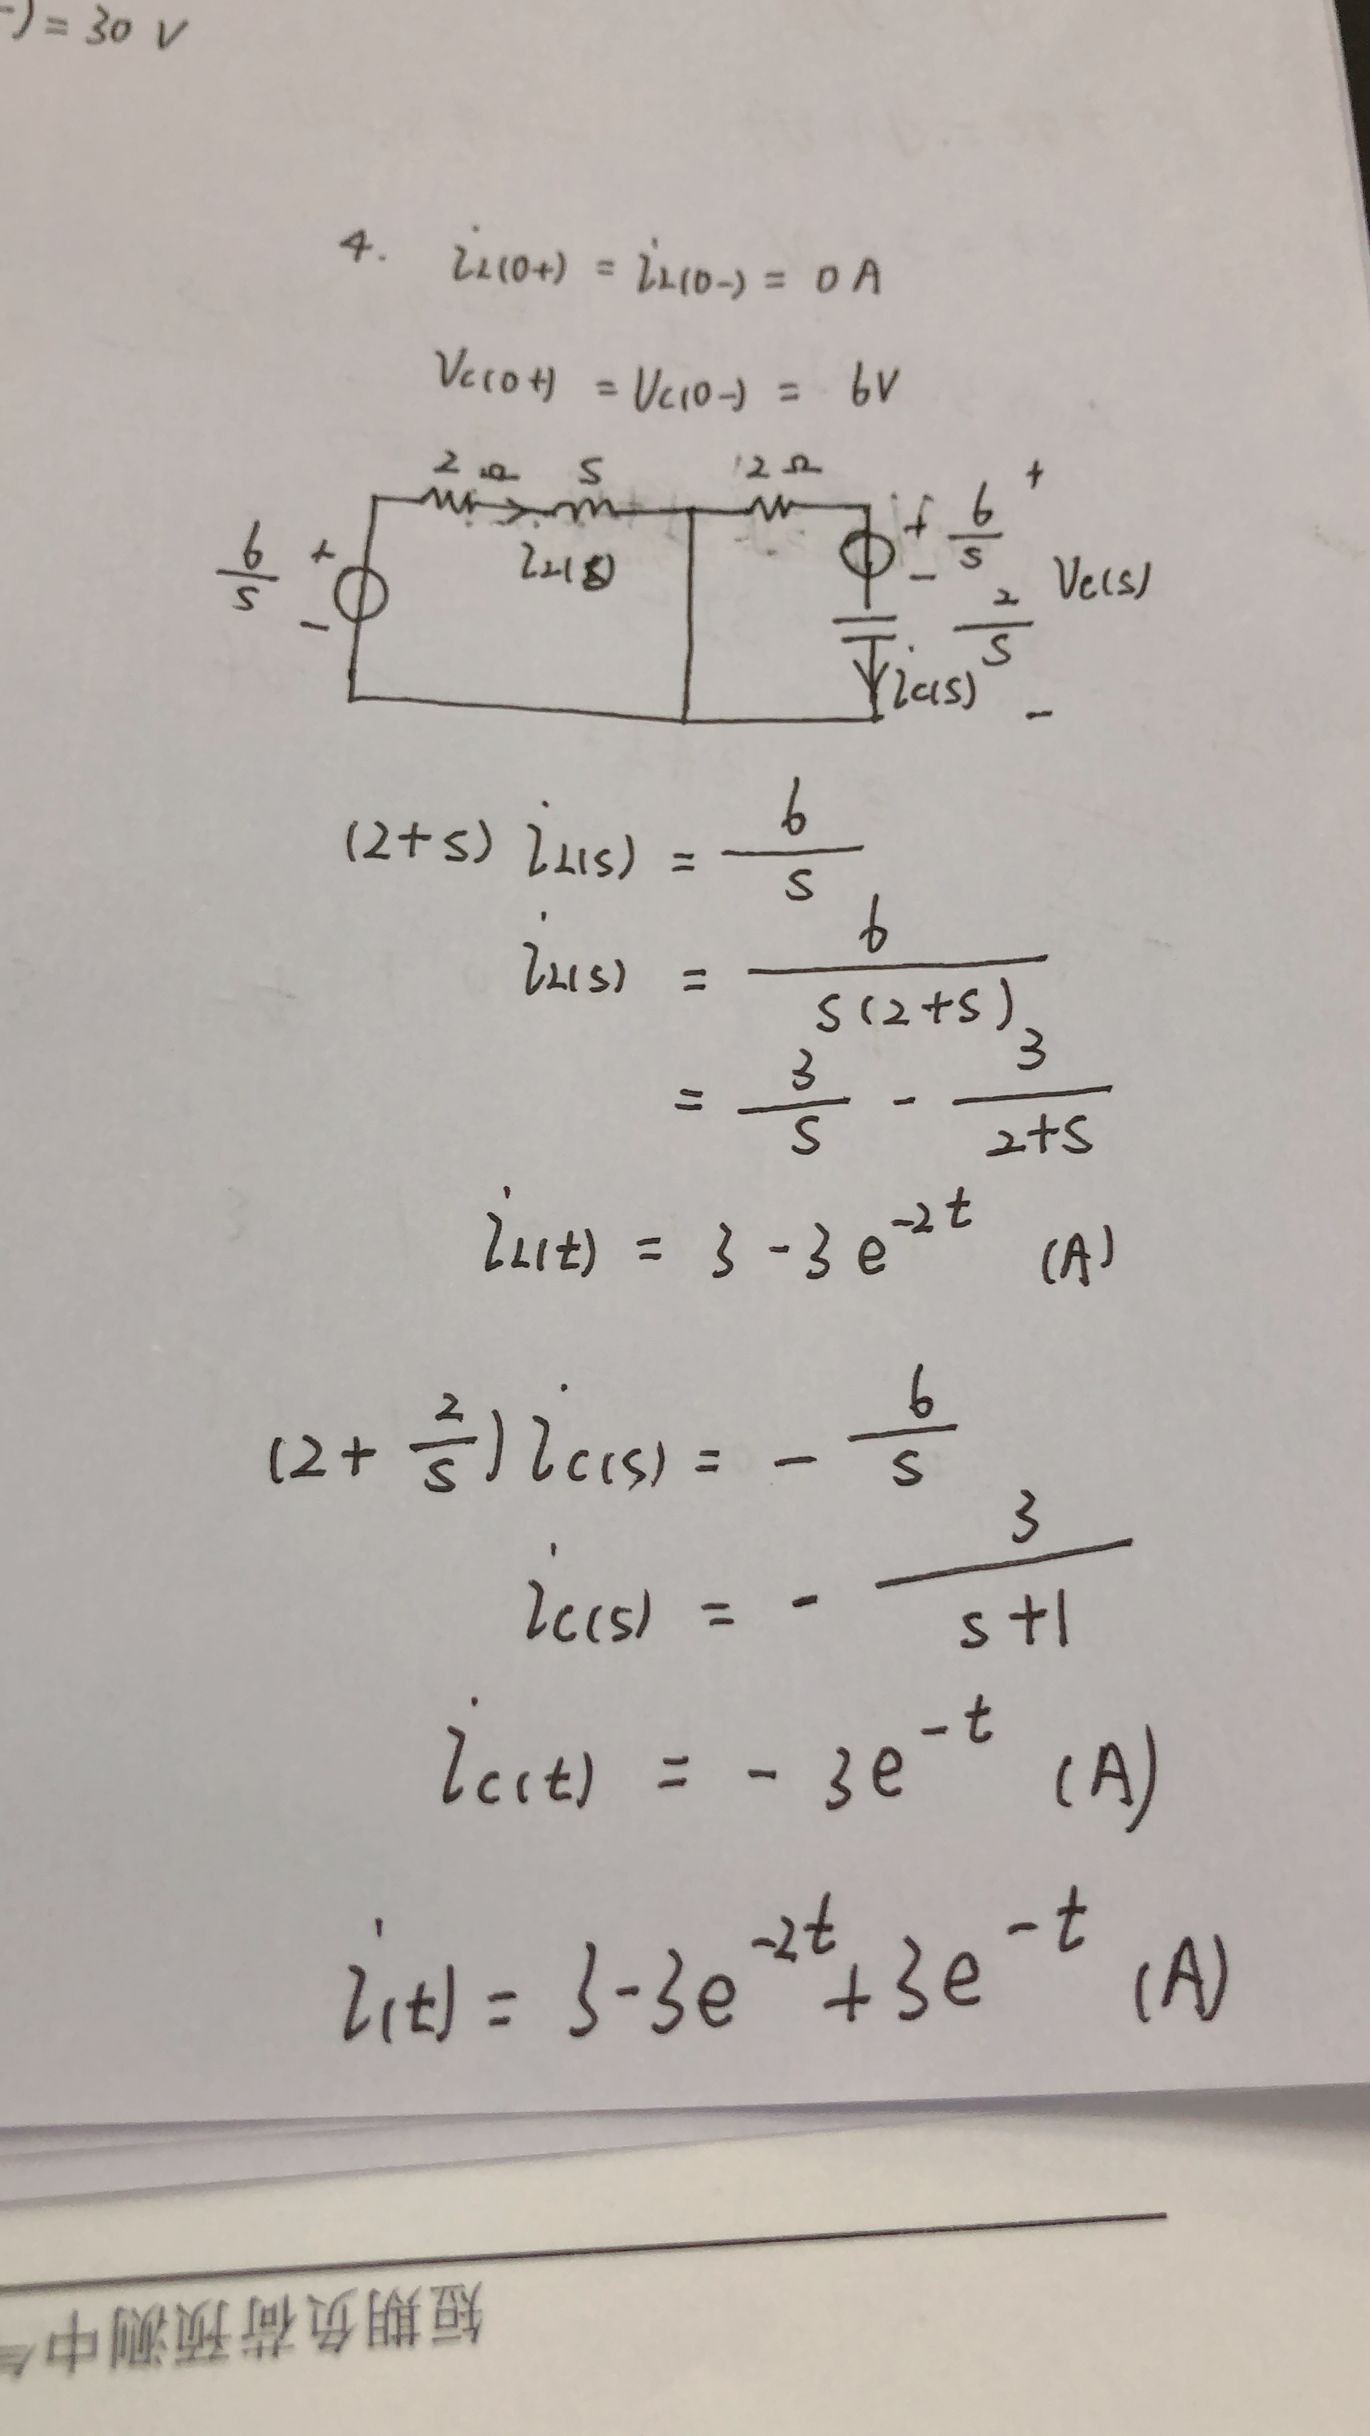 -) = 30 V
4. iL(0+) = iL(0-) = 0 A
Vc(0+) = Uc(0-) = 6V
2 Ω S 2 Ω
6/s + - iL(s) + - 6/s 2/s + Vc(s) -
ic(s)
(2+s) iL(s) = 6/s
iL(s) = 6/(s(2+s))
= 3/s - 3/(2+s)
iL(t) = 3 - 3e^{-2t} (A)
(2+ 2/s) ic(s) = - 6/s
ic(s) = - 3/(s+1)
ic(t) = - 3e^{-t} (A)
i(t) = 3-3e^{-2t}+3e^{-t} (A)
短期负荷预测中